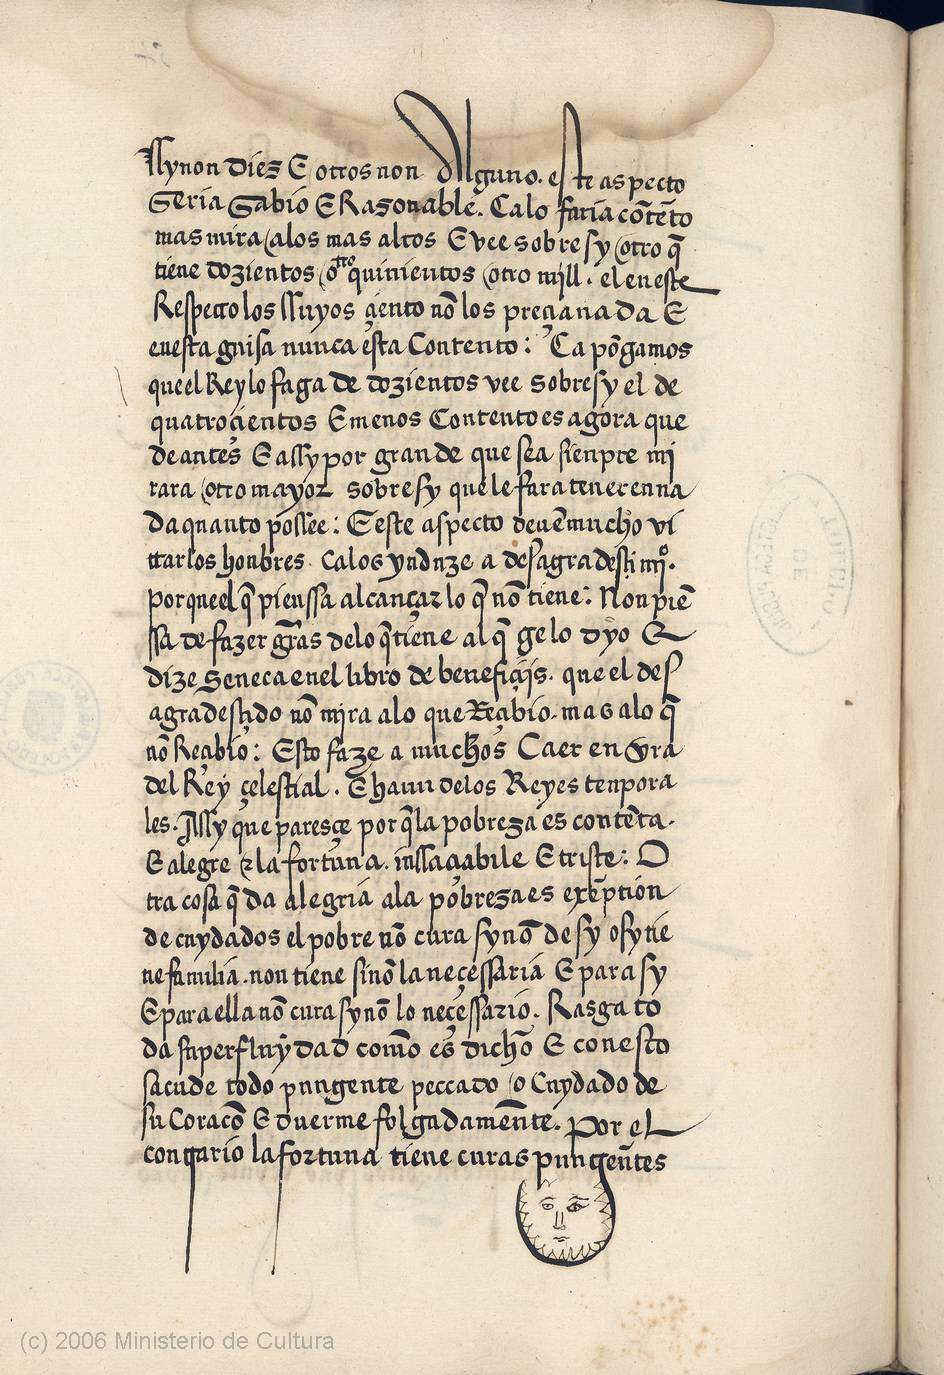 ssynon diez E otros non Alguno. este aspecto
Seria Sabio E Rasonable. Ca lo faria cõtẽto
mas mira a los mas altos E vee sobre sy otro q̃
tiene dozientos otro quinientos otro mjll. el en este
Respecto los ssuyos çiento nõ los preçia nada E
en esta guisa nunca esta Contento: Ca põgamos
que el Rey lo faga de dozientos vee sobre sy el de
quatroçientos E menos Contento es agora que
de antes E assy por grande que sea sienpre mj
rara otro mayor sobre sy que le fara tener en na
da quanto possee: E este aspecto deuẽ mucho vi
tar los honbres. ca los ynduze a desagradesçimjº.
por que el q̃ pienssa alcançar lo q̃ nõ tiene: Non piẽ
ssa de fazer grãs de lo q̃ tiene al q̃ ge lo dyo E
dize Seneca en el libro de benefiçijs. que el des
agradesçido nõ mjra a lo que Reçabio. mas a lo q̃
nõ Reçabio: Esto faze a muchos Caer en yra
del Rey çelestial. E haun de los Reyes tenpora
les. Assy que paresçe por q̃ la pobreza es contẽta.
E alegre E la fortuna. inssaçiabile E triste: O
tra cosa q̃ da alegria a la pobreza es exẽption
de cuydados el pobre nõ cura synõ de sy o sy tie
ne familia. non tiene sinõ la neçessaria E para sy
E para ella nõ cura synõ lo neçessario. Rasga to
da superfluydad como es dicho E con esto
sacude todo pungente peccado o Cuydado de
su Coraçõ E duerme folgadamẽnte. Por el
contrario la fortuna tiene curas pungẽntes
(c) 2006 Ministerio de Cultura